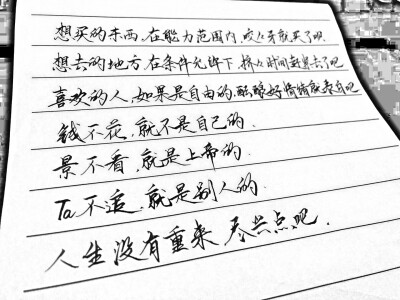 想买的东西,在能力范围内,咬咬牙就买了吧
想去的地方在条件允许下,挤挤时间赶紧去了吧
喜欢的人,如果是自由的,酝酿好情绪就表白吧
钱不花,就不是自己的.
景不看,就是上帝的.
Ta不追,就是别人的.
人生没有重来,尽兴点吧.